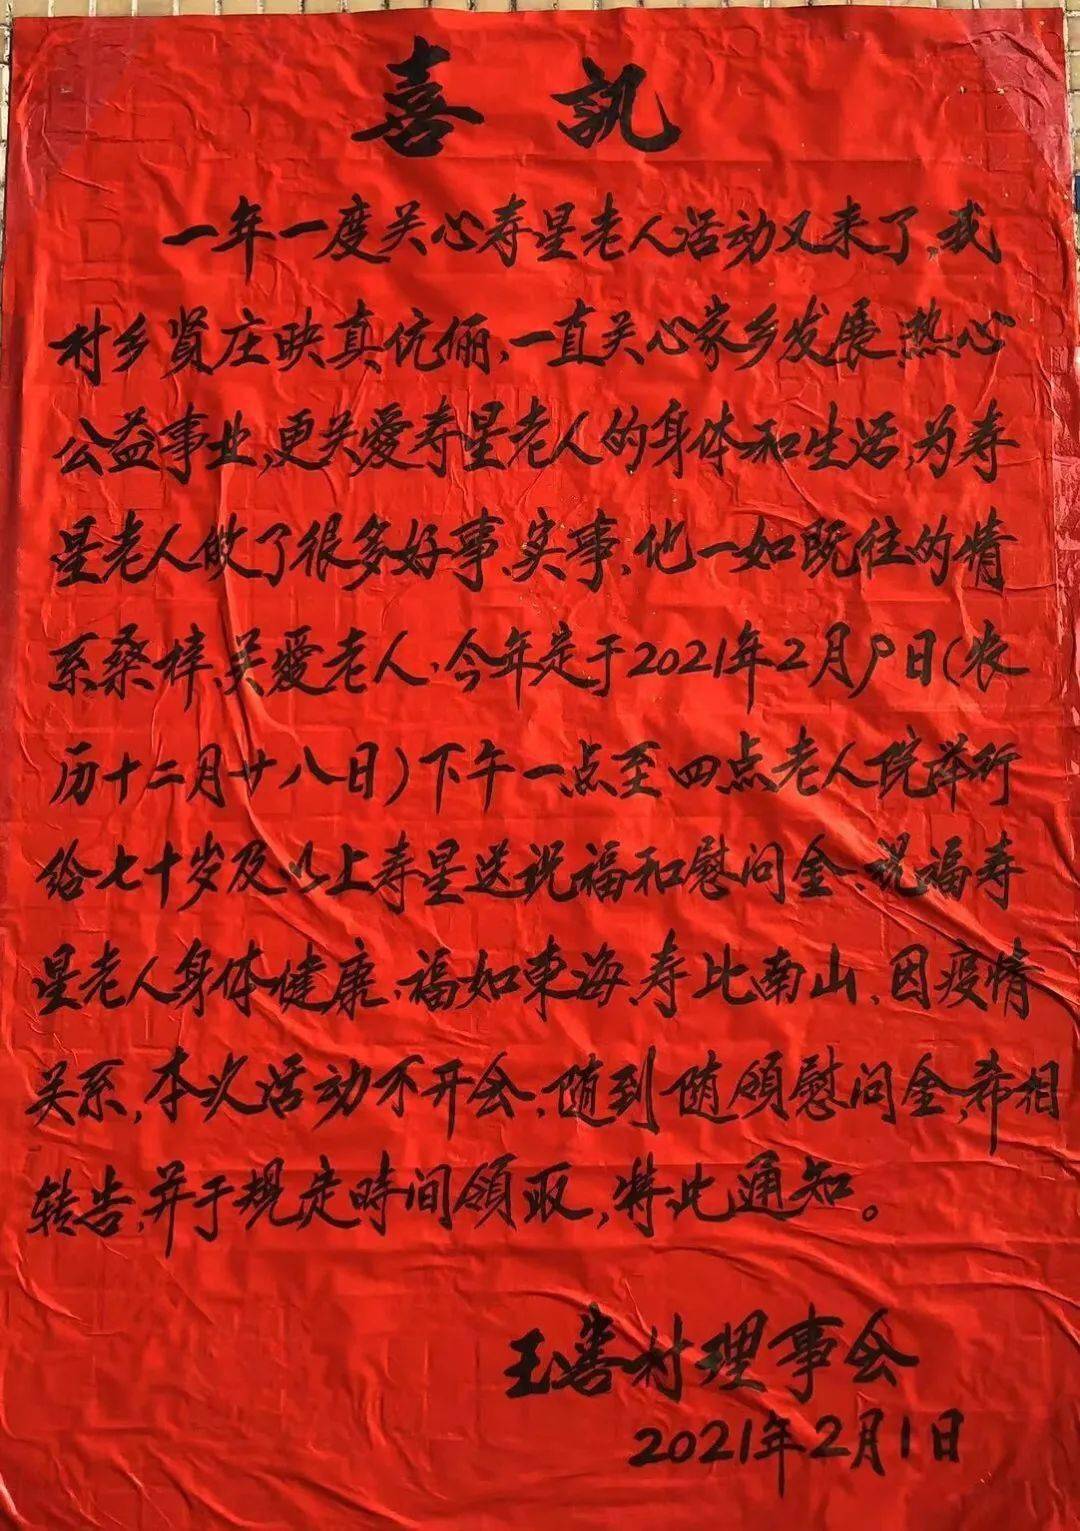 喜訊
一年一度关心寿星老人活动又来了,我
村乡贤庄映真伉俪,一直关心家乡发展,热心
公益事业,更关爱寿星老人的身体和生活,为寿
星老人做了很多好事、实事,他一如既往的情
系桑梓,关爱老人,今年定于2021年2月9日(农
历十二月廿八日)下午一点至四点老人院举行
给七十岁及以上寿星送祝福和慰问金,祝福寿
星老人身体健康,福如東海,寿比南山,因疫情
关系,本次活动不开会,随到随领慰问金,希相
转告,并于规定時间领取,特此通知。
王善村理事会
2021年2月1日